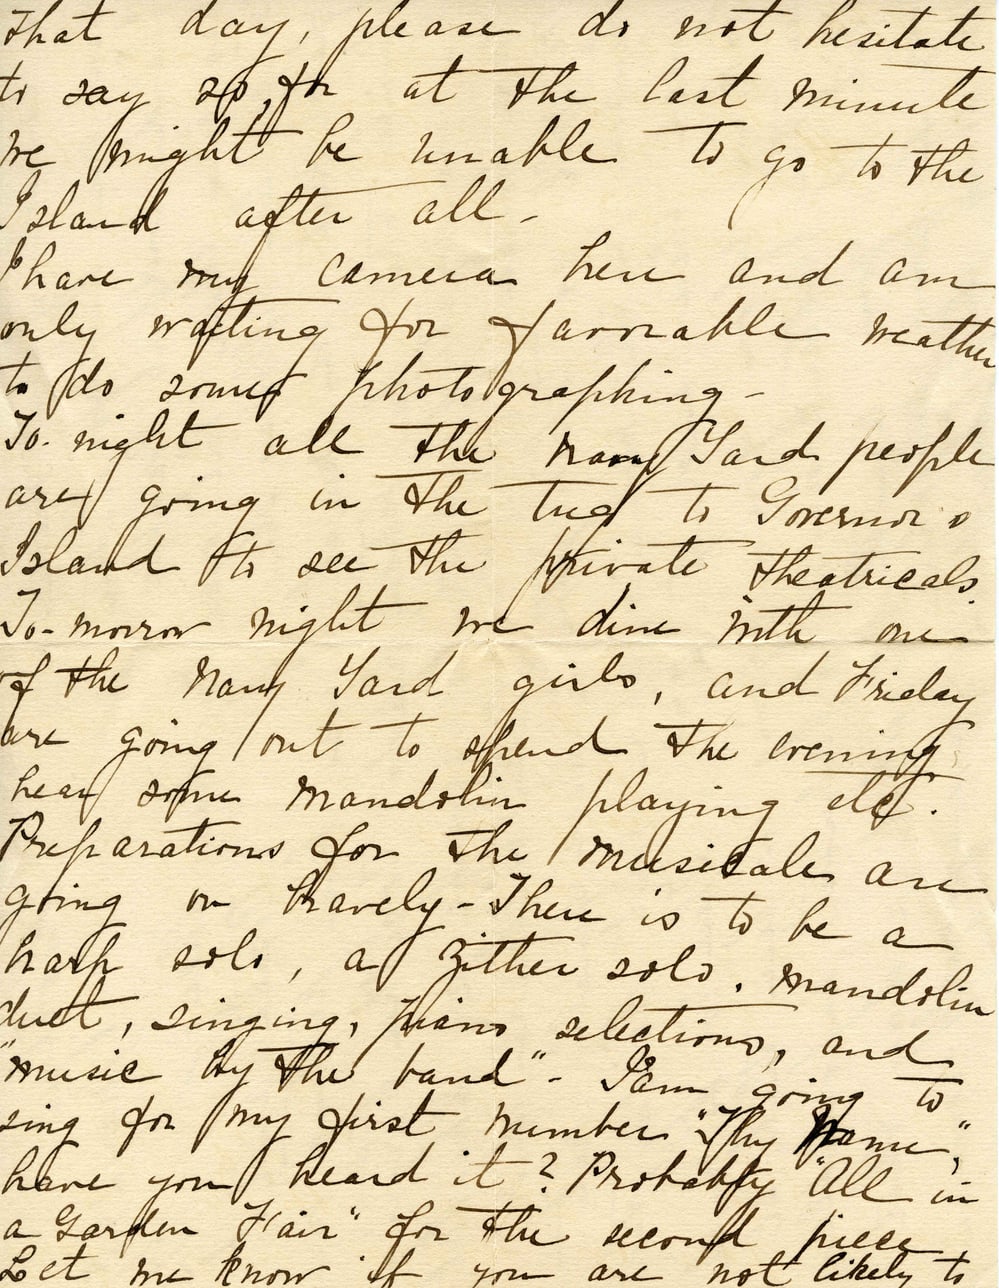 that day, please do not hesitate
to say so, for at the last minute
we might be unable to go to the
Island after all -
I have my camera here and am
only waiting for favorable weather
to do some photographing -
To-night all the Navy Yard people
are going in the tug to Governor's
Island to see the private theatricals.
To-morrow night we dine with one
of the Navy Yard girls, and Friday
are going out to spend the evening
hear some mandolin playing etc.
Preparations for the musicale are
going on bravely - There is to be a
harp solo, a zither solo, mandolin
duet, singing, piano selections, and
"music by the band" - I am going to
sing for my first number "Thy Name",
have you heard it? Probably "All in
a Garden Fair" for the second piece
Let me know if you are not likely to